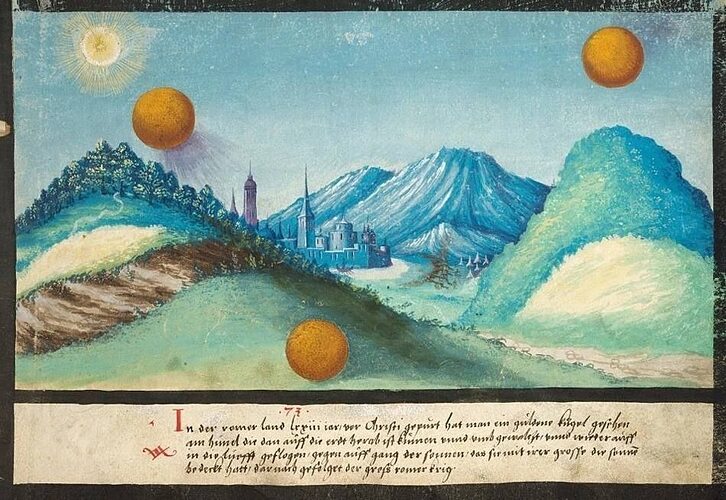 73
In der romer land lxxiii iar vor Christi gepurt hat man ein guldene kugel gesehen
am himel die dan auff die erdt herab ist kumen vnnd vmb gewalczt vnnd wieder auff
in die lufft geflogen gegen auff gang der sonnen das sie mit irer grosse die sonne
bedeckt hatt dar nach gefolget der groß romer krig